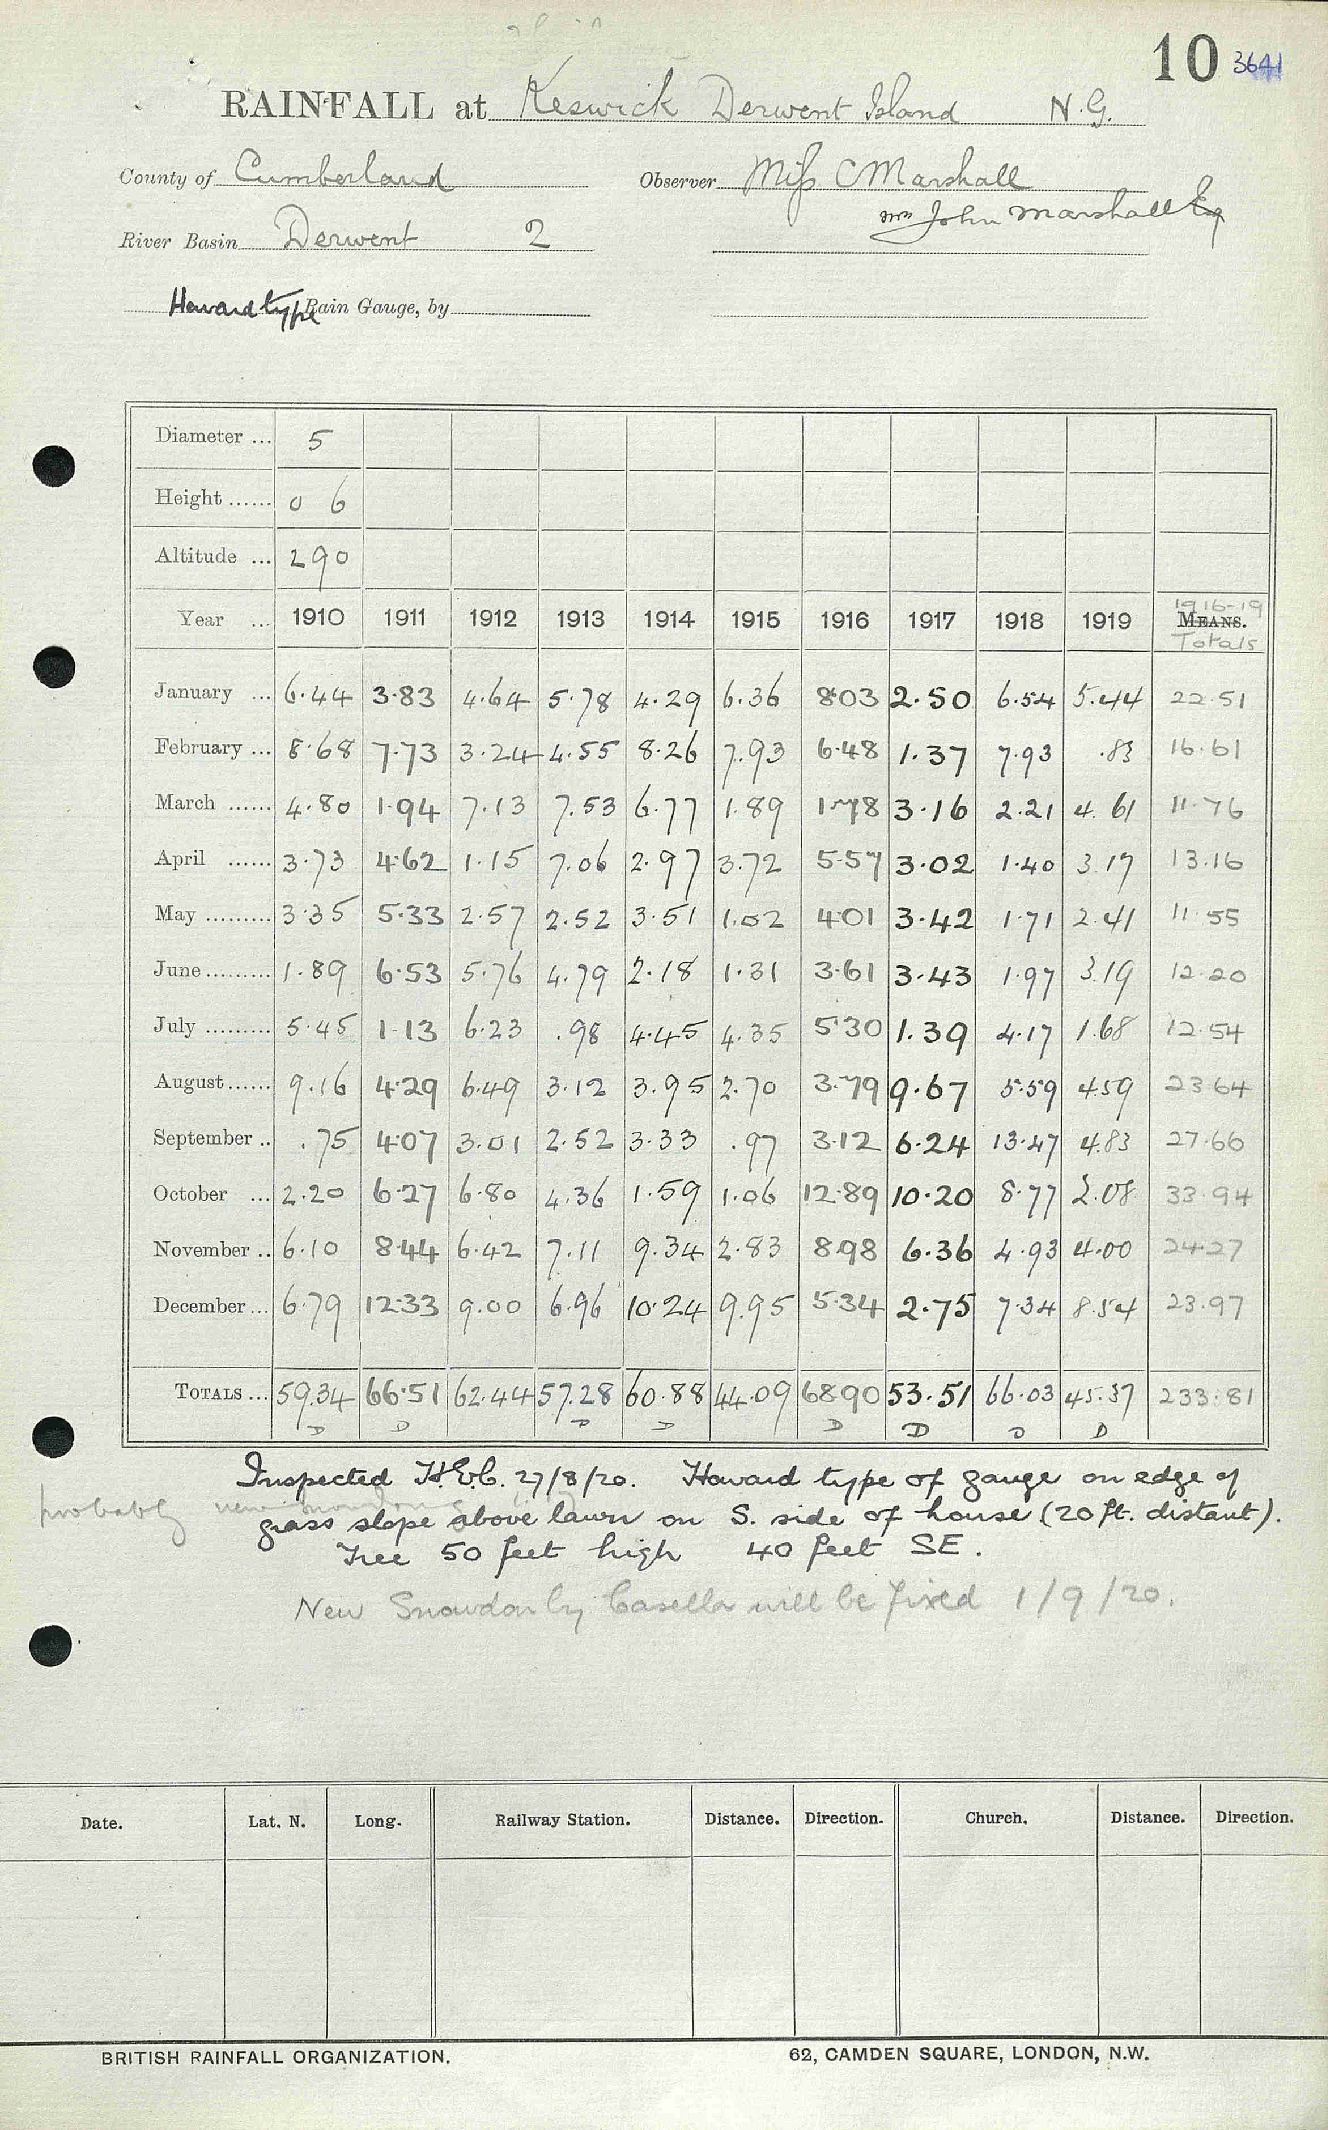 10 3641
RAINFALL at Keswick Derwent Island N.G.
County of Cumberland Observer Miss C Marshall
John Marshall Esq
River Basin Derwent 2
Howard type Rain Gauge, by
Diameter ... 5
Height ...... 0 6
Altitude ... 290
1916-19
Year ... 1910 1911 1912 1913 1914 1915 1916 1917 1918 1919 MEANS.
Totals
January ... 6.44 3.83 4.64 5.78 4.29 6.36 8.03 2.50 6.54 5.44 22.51
February ... 8.68 7.73 3.24 4.55 8.26 7.93 6.48 1.37 7.93 .83 16.61
March ...... 4.80 1.94 7.13 7.53 6.77 1.89 1.78 3.16 2.21 4.61 11.76
April ...... 3.73 4.62 1.15 7.06 2.97 3.72 5.57 3.02 1.40 3.17 13.16
May ......... 3.35 5.33 2.57 2.52 3.51 1.02 4.01 3.42 1.71 2.41 11.55
June ......... 1.89 6.53 5.76 4.79 2.18 1.31 3.61 3.43 1.97 3.19 12.20
July ......... 5.45 1.13 6.23 .98 4.45 4.35 5.30 1.39 4.17 1.68 12.54
August ...... 9.16 4.29 6.49 3.12 3.95 2.70 3.79 9.67 5.59 4.59 23.64
September .. .75 4.07 3.01 2.52 3.33 .97 3.12 6.24 13.47 4.83 27.66
October ... 2.20 6.27 6.80 4.36 1.59 1.06 12.89 10.20 8.77 2.08 33.94
November .. 6.10 8.44 6.42 7.11 9.34 2.83 8.98 6.36 4.93 4.00 24.27
December ... 6.79 12.33 9.00 6.96 10.24 9.95 5.34 2.75 7.34 8.54 23.97
TOTALS ... 59.34 66.51 62.44 57.28 60.88 44.09 68.90 53.51 66.03 45.37 233.81
D D D D D D D D
Inspected 27/8/20. Howard type of gauge on edge of
probably new
grass slope above lawn on S. side of house (20 ft. distant).
Tree 50 feet high 40 feet SE.
New Snowdon by Casella will be fixed 1/9/20.
Date. Lat. N. Long. Railway Station. Distance. Direction. Church. Distance. Direction.
BRITISH RAINFALL ORGANIZATION. 62, CAMDEN SQUARE, LONDON, N.W.